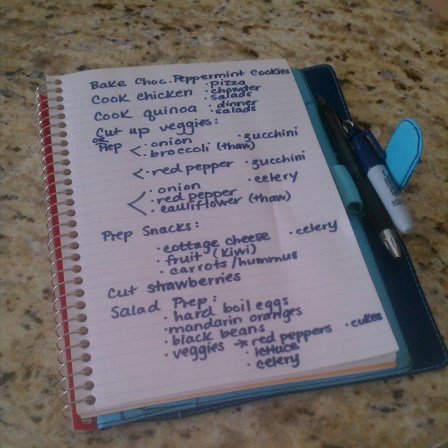 Bake Choc. Peppermint Cookies
Cook chicken · pizza
· chowder
· salads
Cook quinoa · dinner
· salads
Cut up veggies:
or Prep < · onion · zucchini
· broccoli (thaw)
< · red pepper · zucchini
< · onion · celery
· red pepper
· cauliflower (thaw)
Prep Snacks:
· cottage cheese · celery
· fruit (kiwi)
· carrots/hummus
Cut strawberries
Salad Prep:
· hard boil eggs
· mandarin oranges
· black beans
· veggies → · red peppers · cukes
· lettuce
· celery